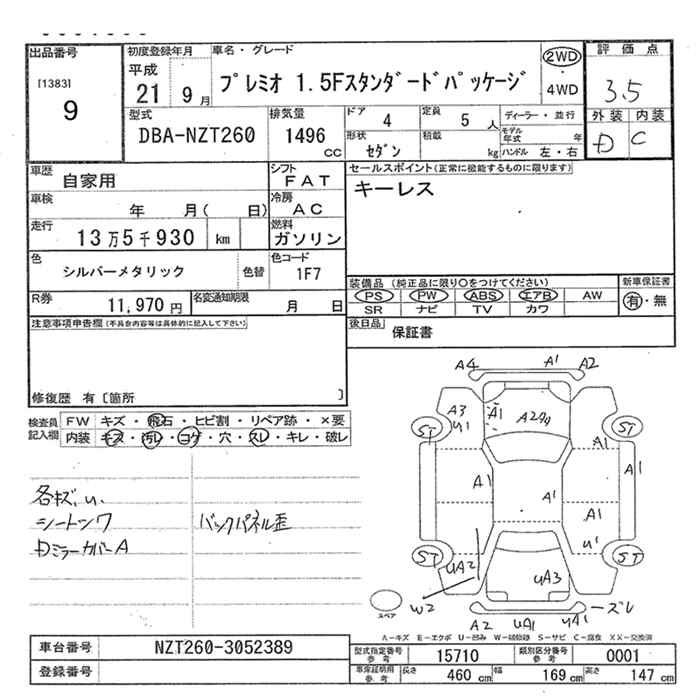 出品番号 初度登録年月 車名・グレード 評価点
[1383] 平成
9 21 9月 プレミオ 1.5Fスタンダードパッケージ 2WD 3.5
4WD
型式 排気量 ドア 4 定員 5 人 ディーラー・並行 外装 内装
DBA-NZT260 1496 cc 形状 セダン 積載 kg モデル年式 年 D C
ハンドル 左・右
車歴 自家用 シフト FAT セールスポイント(正常に機能するものに限ります)
車検 年 月( 日) 冷房 AC キーレス
走行 13万5千930 km 燃料 ガソリン
色 シルバーメタリック 色替 色コード 1F7
装備品 (純正品に限り○をつけてください) 新車保証書
R券 11,970 円 名変通知期限 月 日 PS PW ABS エアB AW 有・無
SR ナビ TV カワ
注意事項申告欄(不具合内容等は具体的に記入して下さい) 後日品 保証書
修復歴 有 [箇所 ]
検査員記入欄 FW キズ・飛石・ヒビ割・リペア跡・×要
内装 キズ・汚レ・コゲ・穴・スレ・キレ・破レ
各キズ、U、
シートシワ バックパネル歪
DミラーカバーA
A4 A1 A2
A3 U1 A1 A2
ST ST
A1
A1 A1 A1
A1
U1
ST UA2 UA3 ST
W2 ズレ
スペア A2 UA1 UA1
A-キズ E-エクボ U-凹み W-補修跡 S-サビ C-腐食 XX-交換済
車台番号 NZT260-3052389 型式指定番号 参考 15710 類別区分番号 参考 0001
登録番号 参考 長さ 460 cm 幅 169 cm 高さ 147 cm